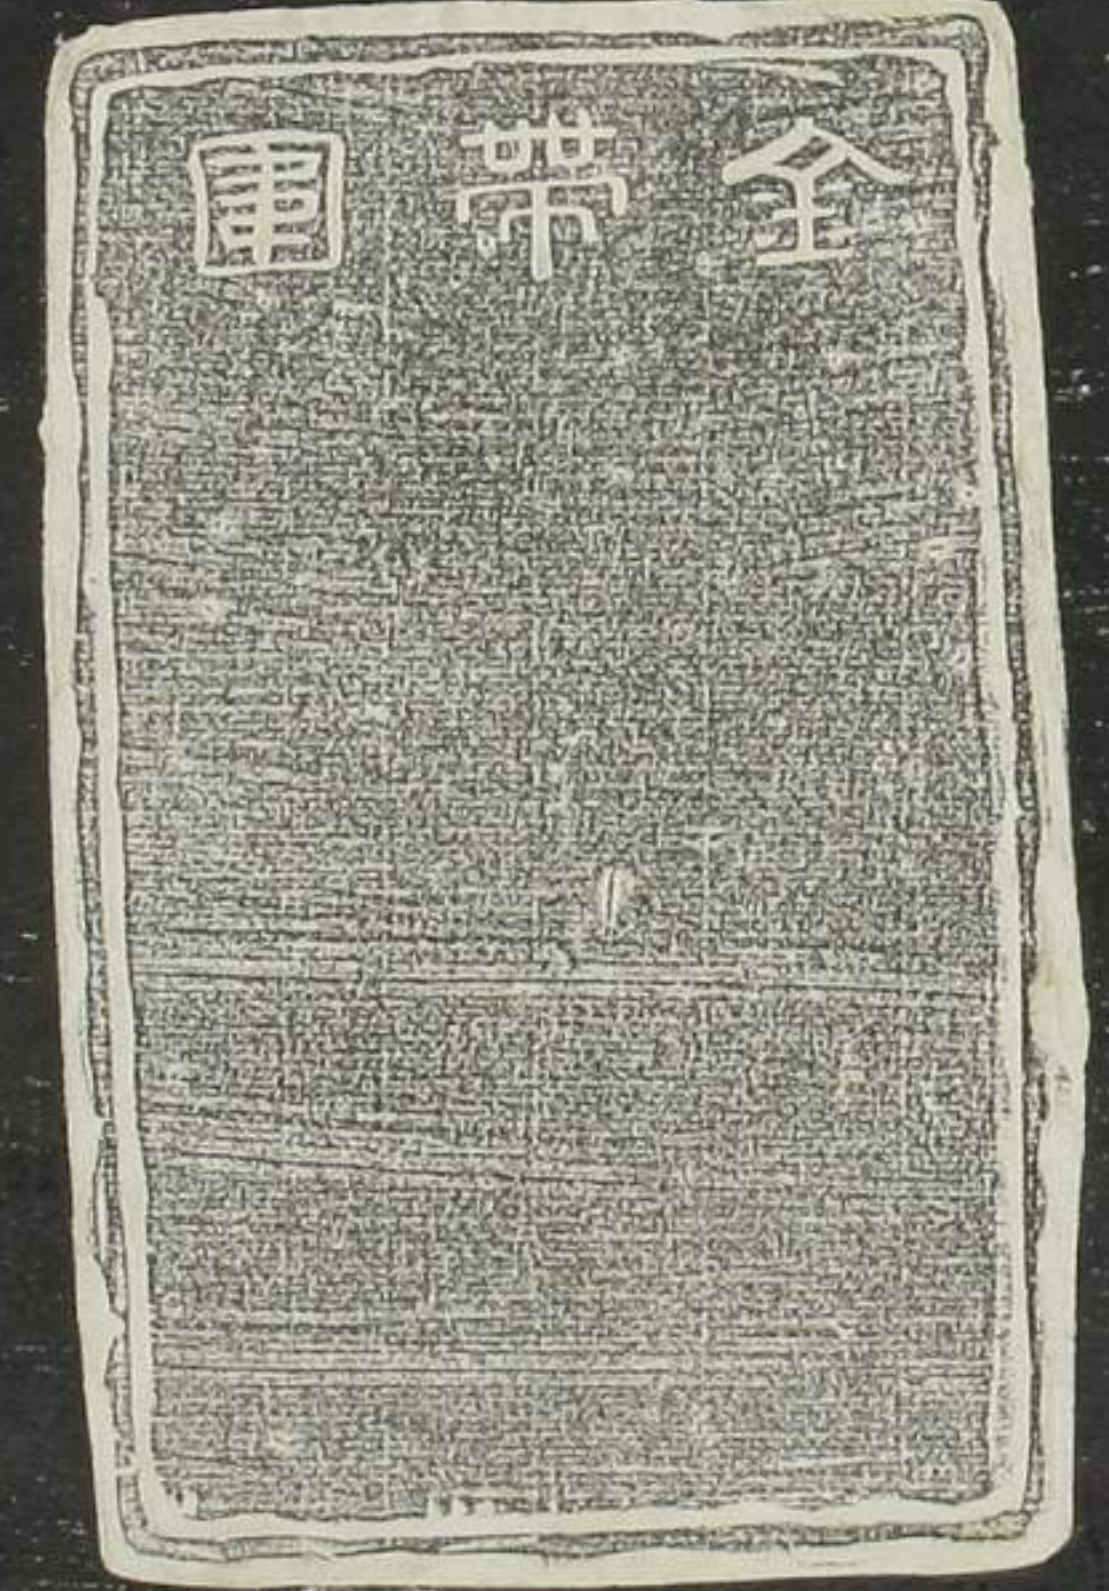 金帶圍